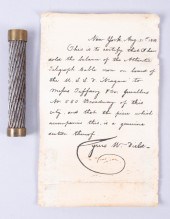 New York Aug. 21st 1858
This is to certify that I have
sold the balance of the Atlantic
Telegraph Cable now on board of
the U. S. S. Niagara to
Messrs Tiffany & Co. Jewellers
No 550 Broadway of this
city, and that the piece which
accompanies this is a genuine
section thereof.
Cyrus W. Field